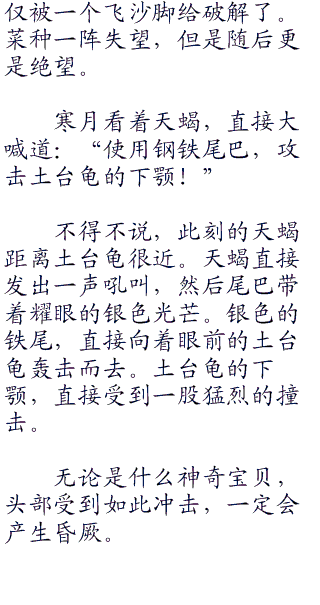 仅被一个飞沙脚给破解了。
菜种一阵失望，但是随后更
是绝望。
寒月看着天蝎，直接大
喊道：“使用钢铁尾巴，攻
击土台龟的下颚！”
不得不说，此刻的天蝎
距离土台龟很近。天蝎直接
发出一声吼叫，然后尾巴带
着耀眼的银色光芒。银色的
铁尾，直接向着眼前的土台
龟轰击而去。土台龟的下
颚，直接受到一股猛烈的撞
击。
无论是什么神奇宝贝，
头部受到如此冲击，一定会
产生昏厥。